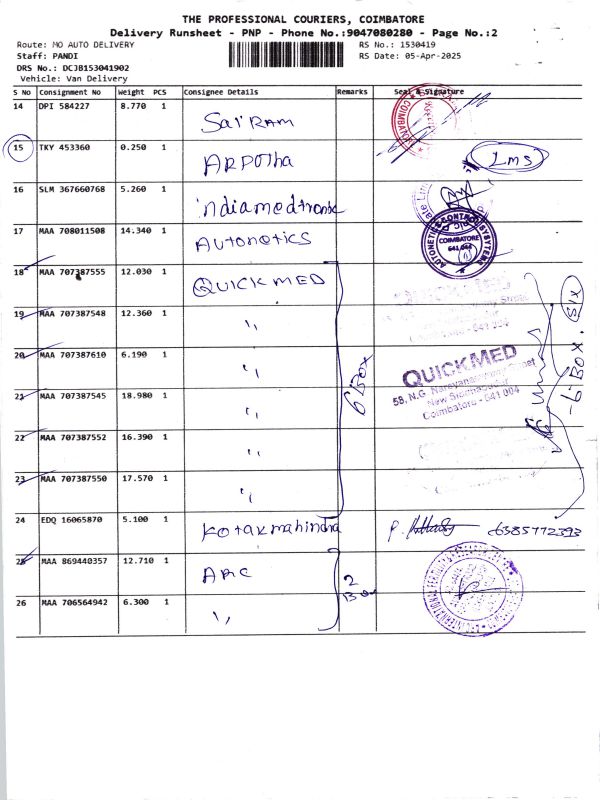 THE PROFESSIONAL COURIERS, COIMBATORE
Delivery Runsheet - PNP - Phone No.:9047080280 - Page No.:2
Route: MO AUTO DELIVERY RS No.: 1530419
Staff: PANDI RS Date: 05-Apr-2025
DRS No.: DCJB153041902
Vehicle: Van Delivery
S No Consignment No Weight PCS Consignee Details Remarks Seal & Signature
14 DPI 584227 8.770 1 Sai RAM COIMBATORE
15 TKY 453360 0.250 1 Lms
16 SLM 367660768 5.260 1 indiamedtronic
17 MAA 708011508 14.340 1 Autonetics AUTONETIC CONTROL SYSTEMS COIMBATORE 641 044
18 MAA 707387555 12.030 1 QUICKMED
19 MAA 707387548 12.360 1 ,,
20 MAA 707387610 6.190 1 ,, 6 Box QUICKMED
58, N.G. Narayanasamy Street
New Siddhapudur
Coimbatore - 641 044
6 BOX. SIX
21 MAA 707387545 18.980 1 ,,
22 MAA 707387552 16.390 1 ,,
23 MAA 707387550 17.570 1 ,,
24 EDQ 16065870 5.100 1 Kotak mahindra 6385772393
25 MAA 869440357 12.710 1 ARC 2 Box
26 MAA 706564942 6.300 1 ,,